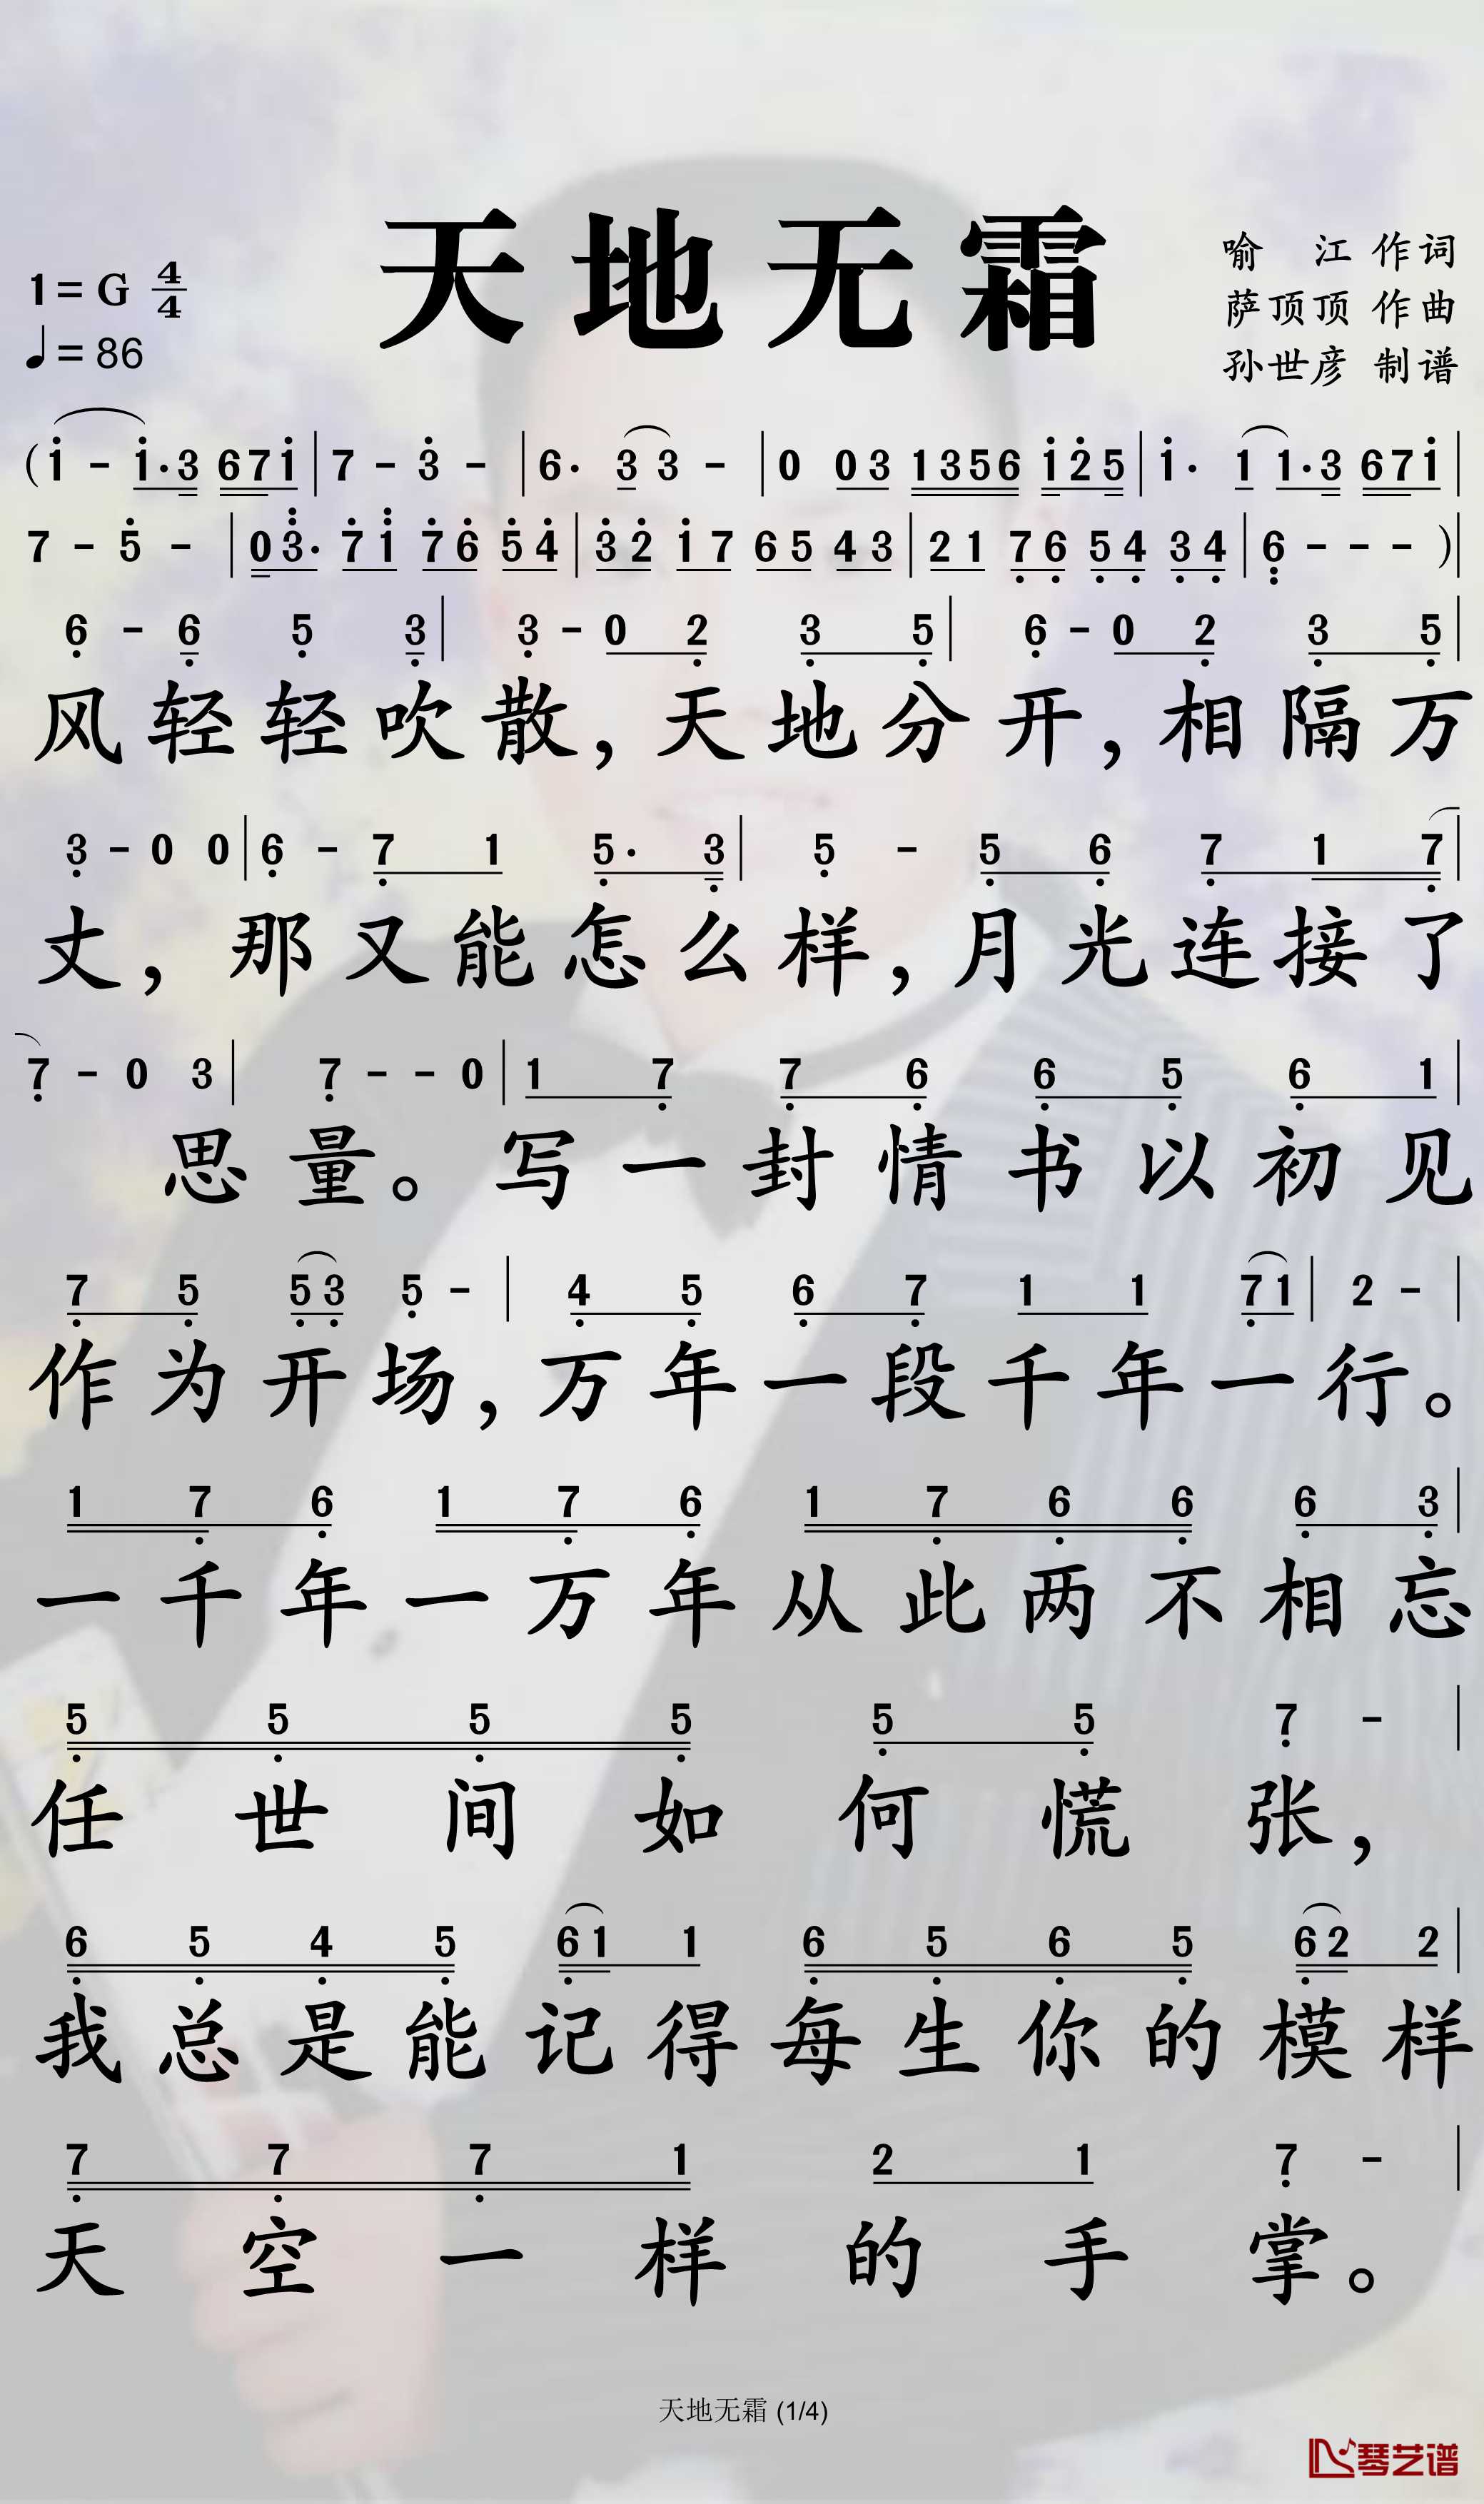 天地无霜
喻 江 作词
1=G 4/4
萨顶顶 作曲
♩=86
孙世彦 制谱
(1 - 1·3 671 | 7 - 3 - | 6· 3 3 - | 0 03 1356 125 | 1· 1 1·3 671 |
7 - 5 - | 03· 71 76 54 | 32 17 65 43 | 21 76 54 34 | 6 - - - )|
6 - 6 5 3 | 3 - 0 2 3 5 | 6 - 0 2 3 5 |
风轻轻吹散，天地分开，相隔万
3 - 0 0 | 6 - 7 1 5· 3 | 5 - 5 6 7 1 7 |
丈，那又能怎么样，月光连接了
7 - 0 3 | 7 - - 0 | 1 7 7 6 6 5 6 1 |
思量。写一封情书以初见
7 5 53 5 - | 4 5 6 7 1 1 71 | 2 - |
作为开场，万年一段千年一行。
1 7 6 1 7 6 1 7 6 6 6 3 |
一千年一万年从此两不相忘
5 5 5 5 5 5 7 - |
任世间如何慌张，
6 5 4 5 61 1 6 5 6 5 62 2 |
我总是能记得每生你的模样
7 7 7 1 2 1 7 - |
天空一样的手掌。
天地无霜 (1/4)
琴艺谱